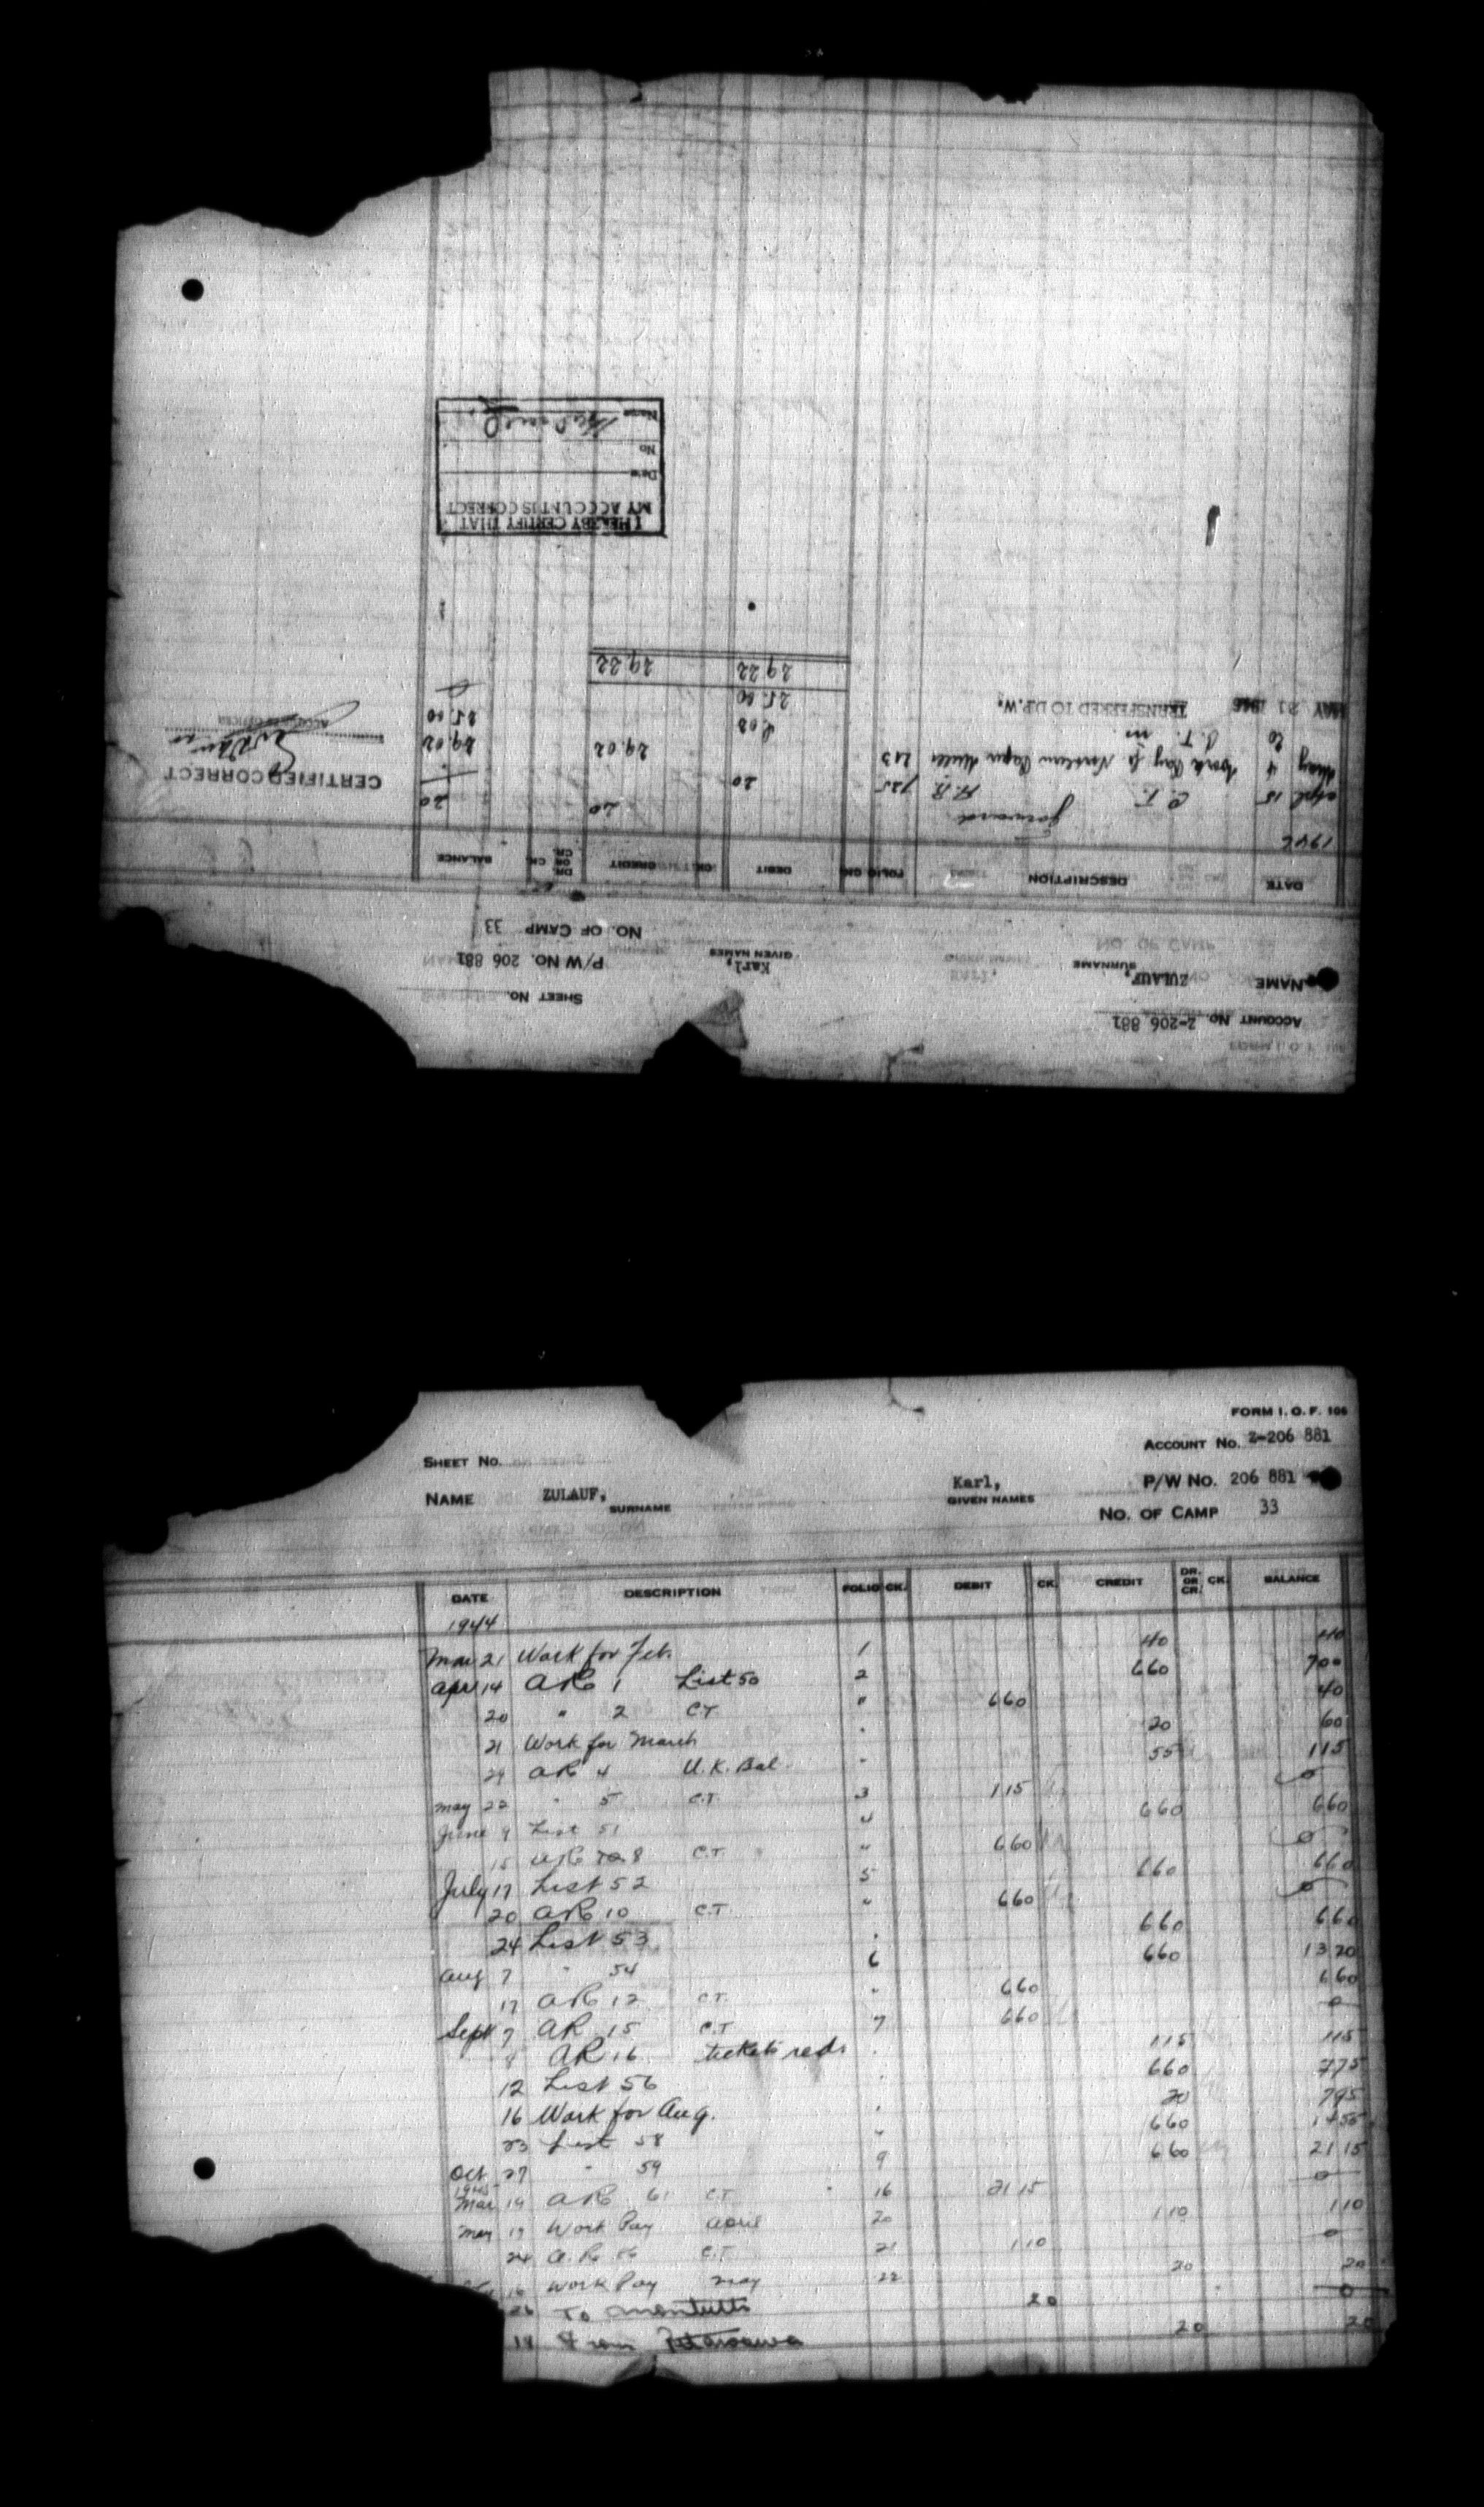 FORM I. O. F. 106
ACCOUNT No. Z-206 881
SHEET No.
NAME ZULAUF, Karl, P/W No. 206 881
SURNAME GIVEN NAMES
No. OF CAMP 33
DATE DESCRIPTION FOLIO CK. DEBIT CK. CREDIT DR. OR CR. CK. BALANCE
1944
Mar 21 Work for Feb. 1 40 40
Apr 14 AR 1 List 50 2 660 700
20 " 2 C.T. " 660 40
21 Work for March " 20 60
29 AR 4 U.K. Bal. " 55 115
May 22 " 5 C.T. 3 115 0
June 9 List 51 660 660
15 AR 8 C.T. " 660 0
July 17 List 52 5 660 660
20 AR 10 C.T. " 660 0
24 List 53 " 660 660
Aug 7 " 54 6 660 1320
17 AR 12 C.T. " 660 660
Sept 7 AR 15 C.T. 7 660 0
8 AR 16 tickets red. 115 115
12 List 56 660 775
16 Work for Aug. 20 795
23 List 58 " 660 1455
Oct 27 " 59 9 660 2115
1945
Mar 19 AR 61 C.T. 16 2115 0
May 19 Work Pay April 20 110 110
24 A.R. C.T. 21 110 0
16 Work Pay May 22 20 20
26 To 20 0
18 From Petawawa 20 20
ACCOUNT No. Z-206 881
SHEET No.
NAME ZULAUF, Karl, P/W No. 206 881
SURNAME GIVEN NAMES
NO. OF CAMP 33
DATE DESCRIPTION FOLIO CK. DEBIT CK. CREDIT DR. OR CR. CK. BALANCE
1946
forward 20 20
April 15 C.T. A.R. 725 20
May 4 Work Pay fr Northern Paper Mills 213 29.02 29.02
20 C.T. 4.02 25.00
MAY 21 1946 TRANSFERRED TO D.P.W. 25.00 0
29.22 29.22
CERTIFIED CORRECT
ACCOUNTS OFFICER
I HEREBY CERTIFY THAT
MY ACCOUNT IS CORRECT
Date
No
Name